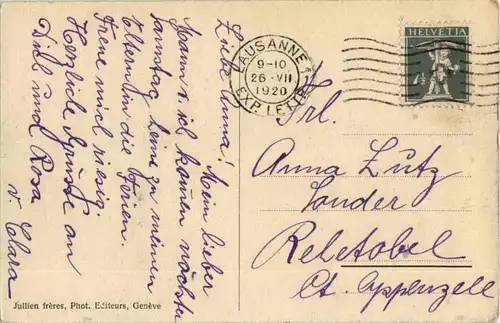 Liebe Anna! Mein lieber
Mann u. ich kommen nächsten
Samstag heim zu meinen
Eltern in die Ferien.
Freue mich riesig.
Herzliche Grüsse an
Dill und Rosa
v. Clara
Jullien frères, Phot. Editeurs, Genève
LAUSANNE 1
9-10
26·VII
1920
EXP. LETTR.
HELVETIA
Frl.
Anna Lutz
Sonder
Rehetobel
Ct. Appenzell